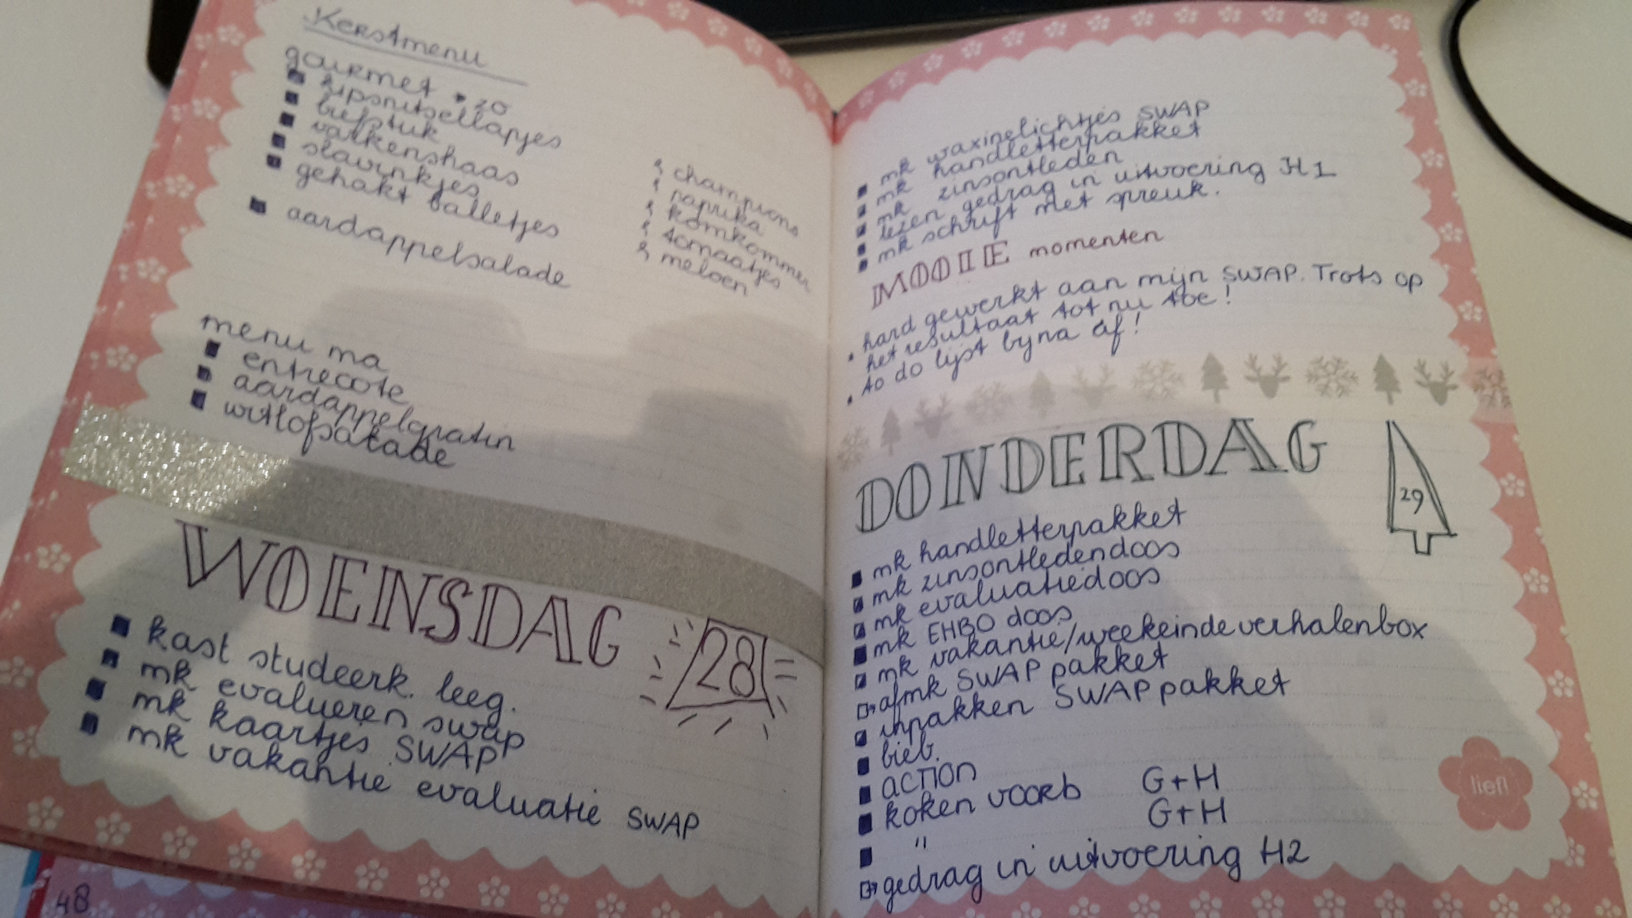 Kerstmenu
gourmet • 20
kipsnitsellapjes
biefstuk
varkenshaas
slavinkjes
gehakt balletjes
aardappelsalade
champions
paprika
komkommer
tomaatjes
meloen
menu ma
entrecote
aardappelgratin
witlofsalade
WOENSDAG 28
kast studeerk. leeg.
mk evalueren swap
mk kaartjes SWAP
mk vakantie evaluatie SWAP
48
mk waxinelichtjes SWAP
mk handletterpakket
mk zinsontleden
lezen gedrag in uitvoering H1
mk schrift met spreuk.
MOOIE momenten
• hard gewerkt aan mijn SWAP. Trots op
het resultaat tot nu toe!
• to do lijst bijna af!
DONDERDAG 29
mk handletterpakket
mk zinsontledendoos
mk evaluatiedoos
mk EHBO doos
mk vakantie/weekeindeverhalenbox
afmk SWAP pakket
inpakken SWAP pakket
bieb.
ACTION
koken voorb G+H
" G+H
gedrag in uitvoering H2
lief!